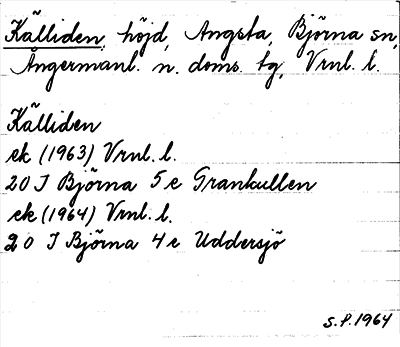 Källiden, höjd, Angsta, Björna sn,
Ångermanl. n. doms. tg, Vrnl. l.
Källiden
ek (1963) Vrnl. l.
20 J Björna 5 e Grankullen
ek (1964) Vrnl. l.
20 J Björna 4 e Uddersjö
S.P. 1964